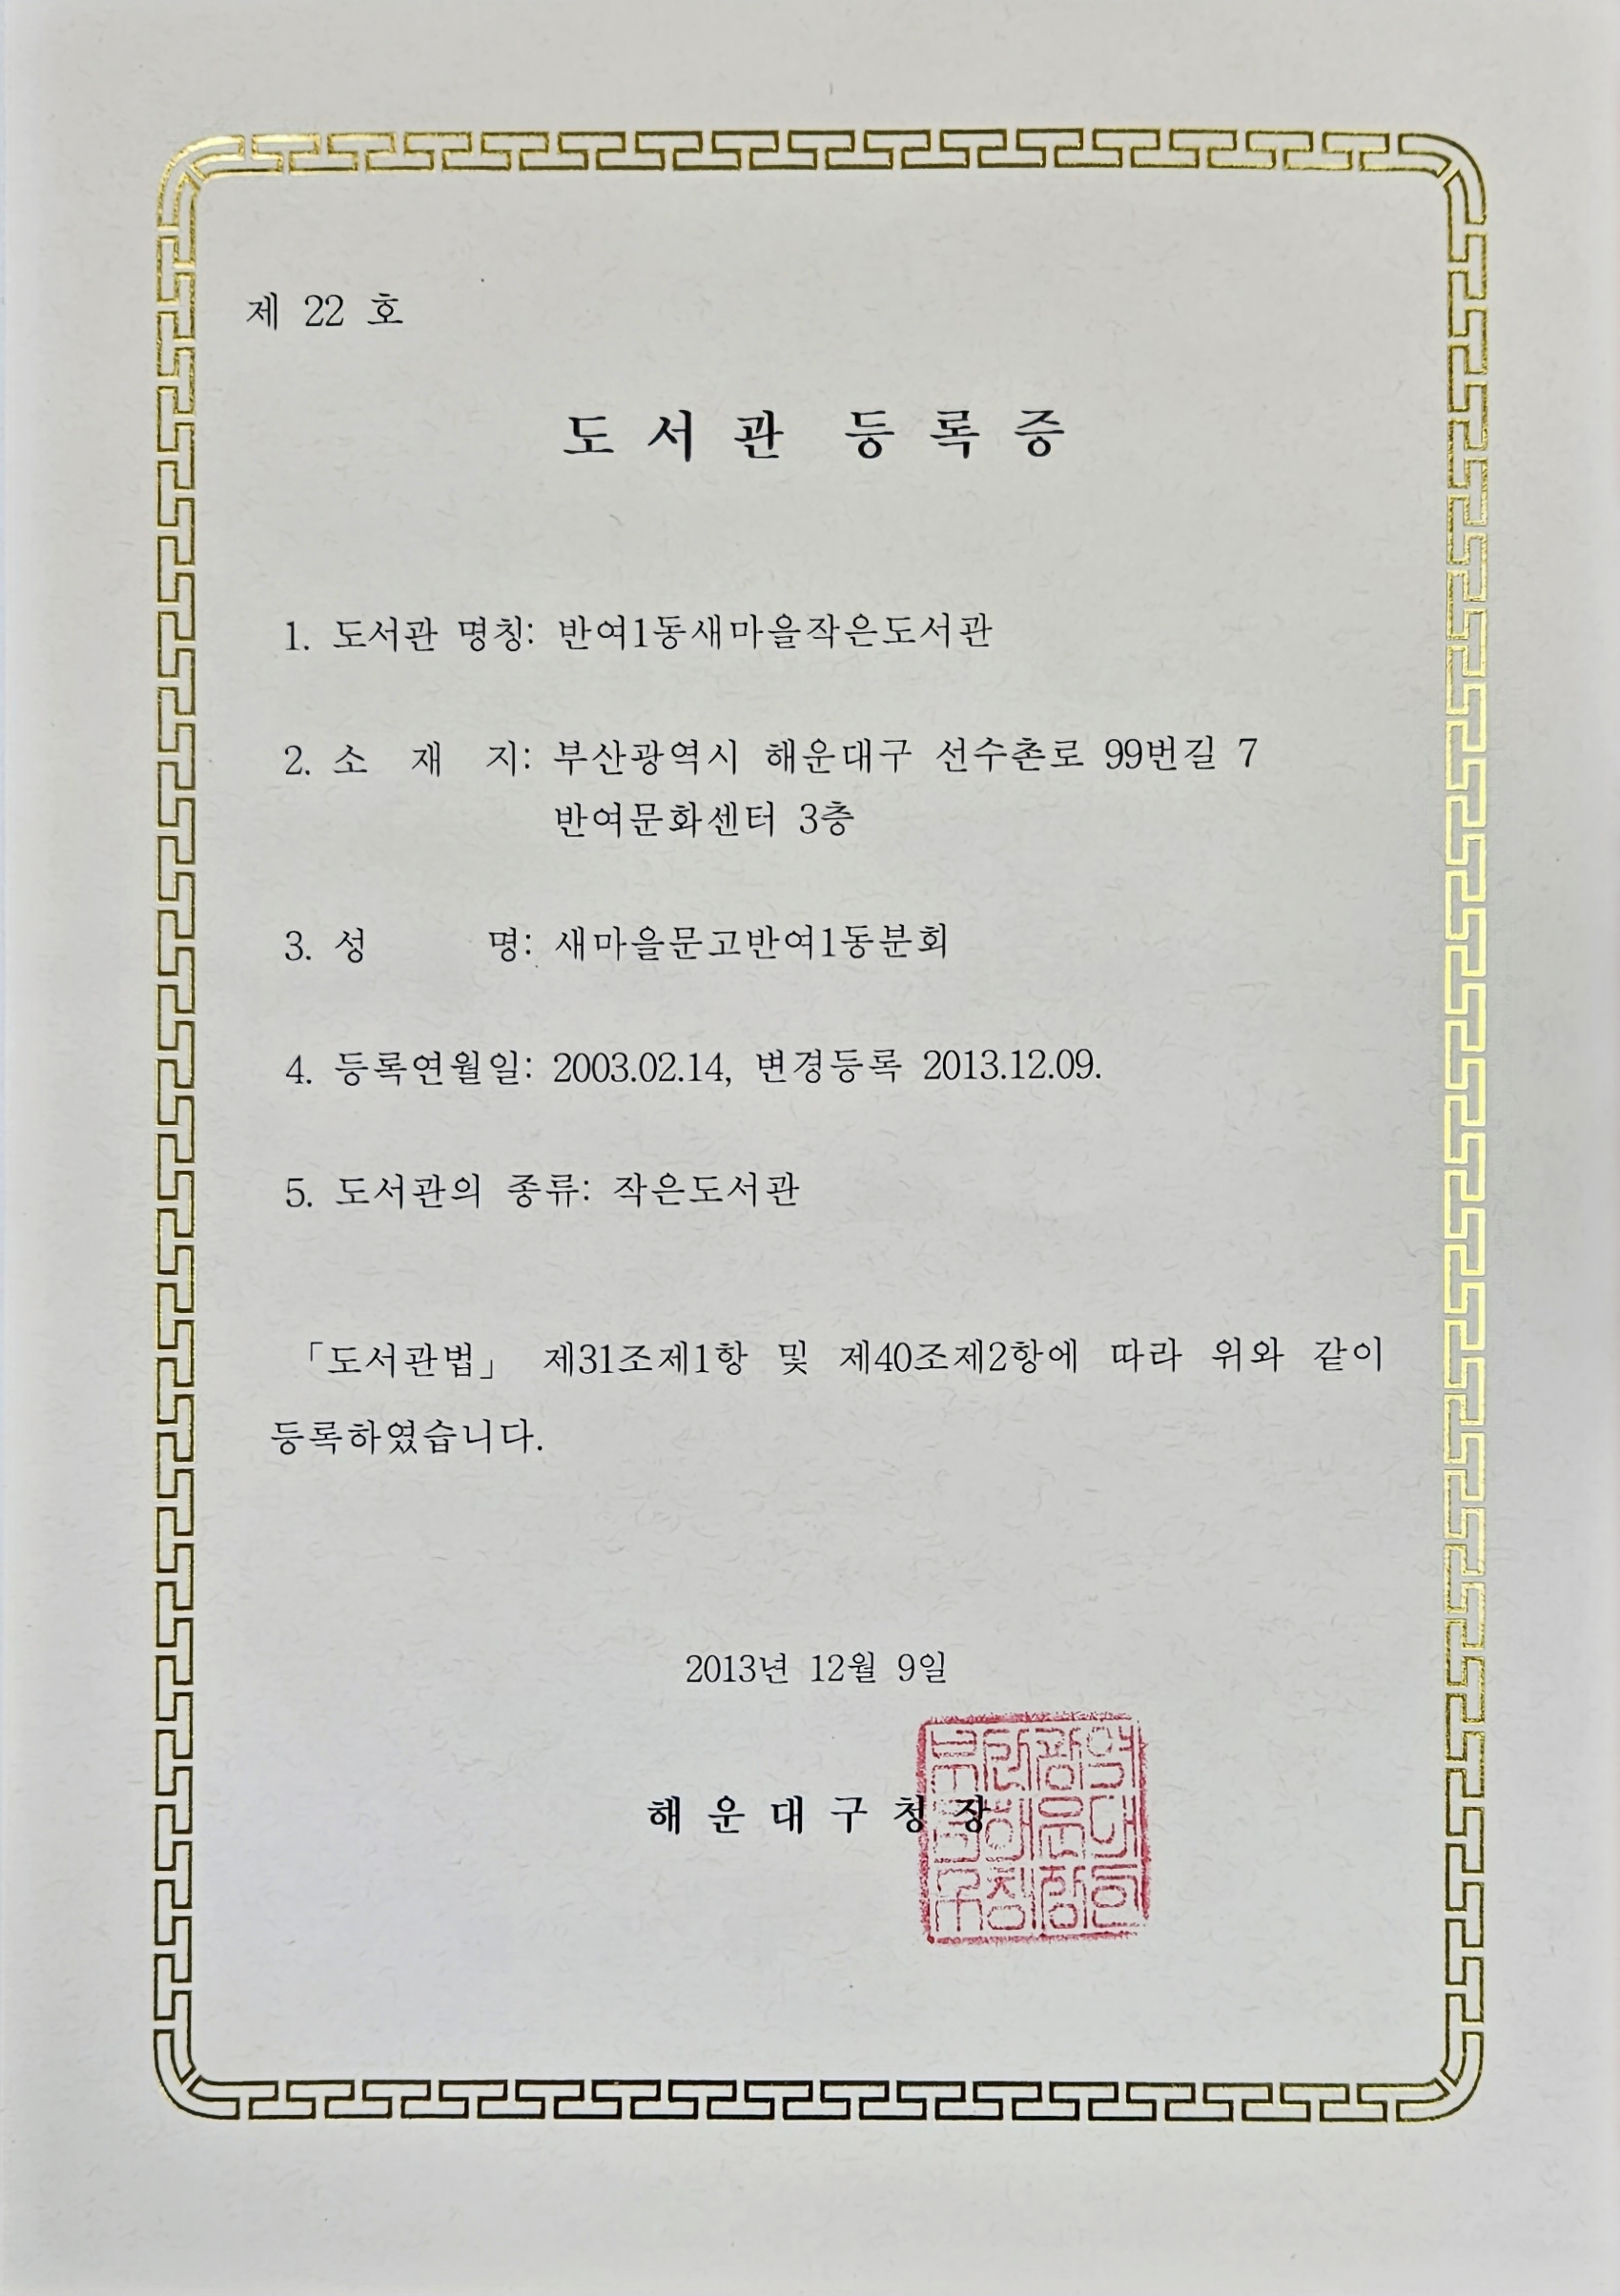 제 22 호
도서관 등록증
1. 도서관 명칭: 반여1동새마을작은도서관
2. 소 재 지: 부산광역시 해운대구 선수촌로 99번길 7
반여문화센터 3층
3. 성 명: 새마을문고반여1동분회
4. 등록연월일: 2003.02.14, 변경등록 2013.12.09.
5. 도서관의 종류: 작은도서관
「도서관법」 제31조제1항 및 제40조제2항에 따라 위와 같이
등록하였습니다.
2013년 12월 9일
해운대구청장
부산광역
시해운대
구청장인